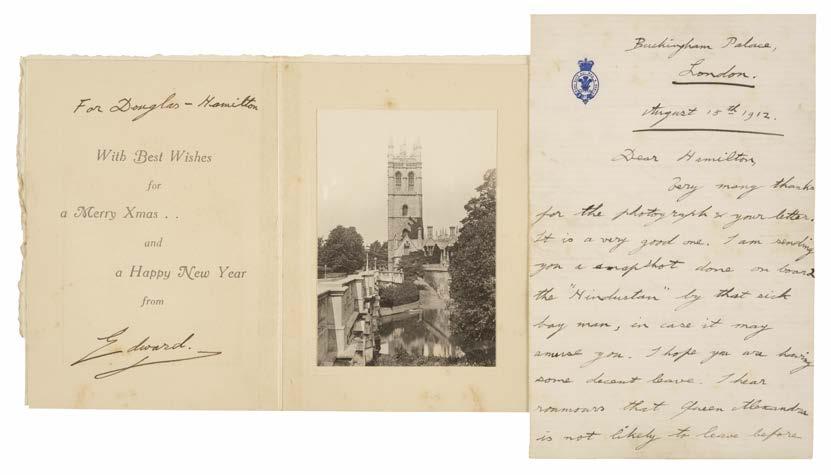 For Douglas-Hamilton
With Best Wishes
for
a Merry Xmas . .
and
a Happy New Year
from
Edward.
Buckingham Palace,
London.
August 15th 1912.
Dear Hamilton,
Very many thanks
for the photograph & your letter.
It is a very good one. I am sending
you a snapshot done on board
the "Hindustan" by that sick
bay man, in case it may
amuse you. I hope you are having
some decent leave. I hear
roumours that Queen Alexandra
is not likely to leave before